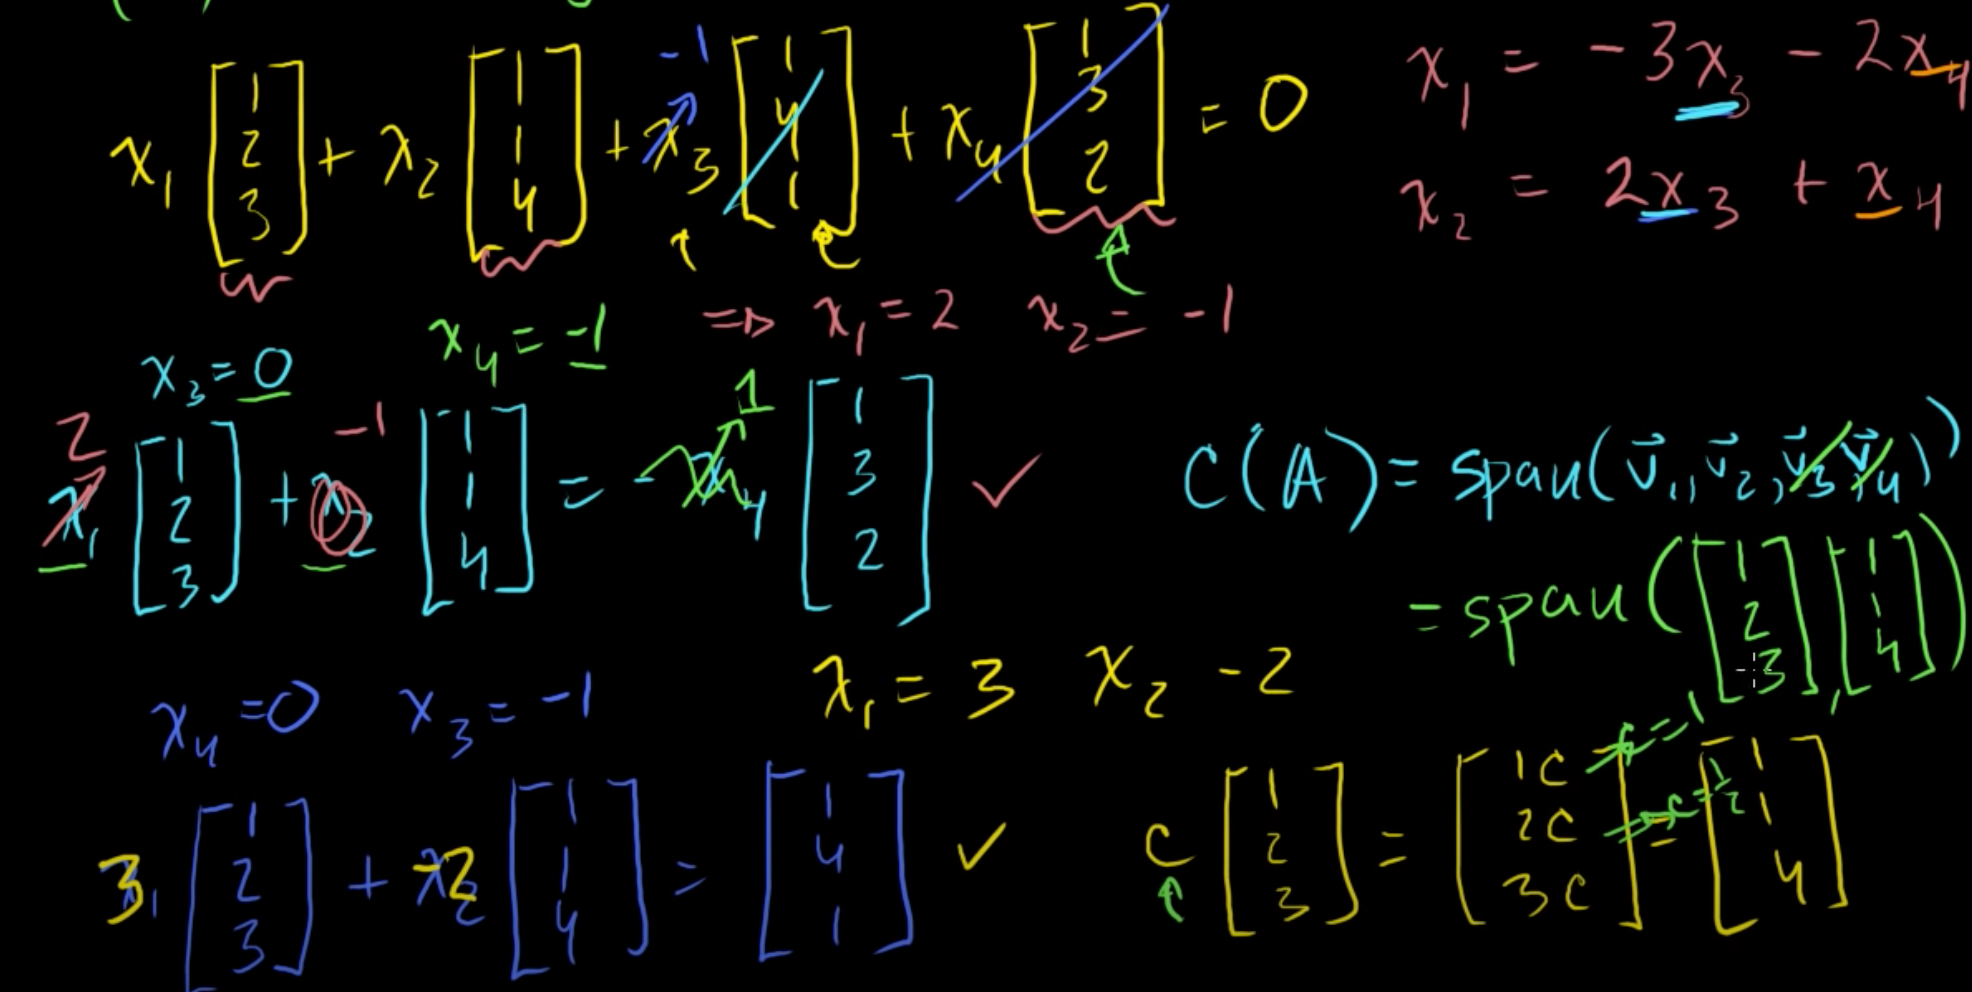 x₁ [1 2 3] + x₂ [1 1 4] + x₃ [1 4 1] + x₄ [1 3 2] = 0
-1
x₁ = -3x₃ - 2x₄
x₂ = 2x₃ + x₄
x₃ = 0 x₄ = -1 ⇒ x₁ = 2 x₂ = -1
2 -1 1
x₁ [1 2 3] + x₂ [1 1 4] = -x₄ [1 3 2] ✓
C(A) = span(v⃗₁, v⃗₂, v⃗₃, v⃗₄)
= span([1 2 3], [1 1 4])
x₄ = 0 x₃ = -1 x₁ = 3 x₂ -2
3 [1 2 3] + -2 [1 1 4] = [1 4 1] ✓
c [1 2 3] = [1c 2c 3c] = [1 1 4]
c = 1
c = 1/2